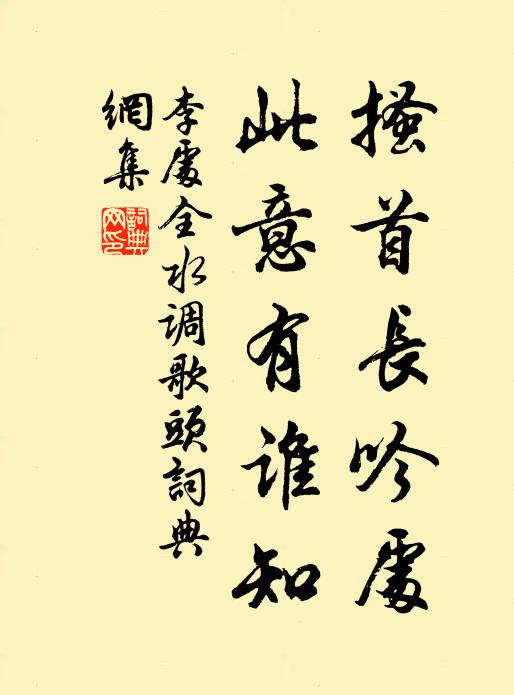 搔首長吟處
此意有誰知
李處全水调歌頭詞典
網集
詞典網印